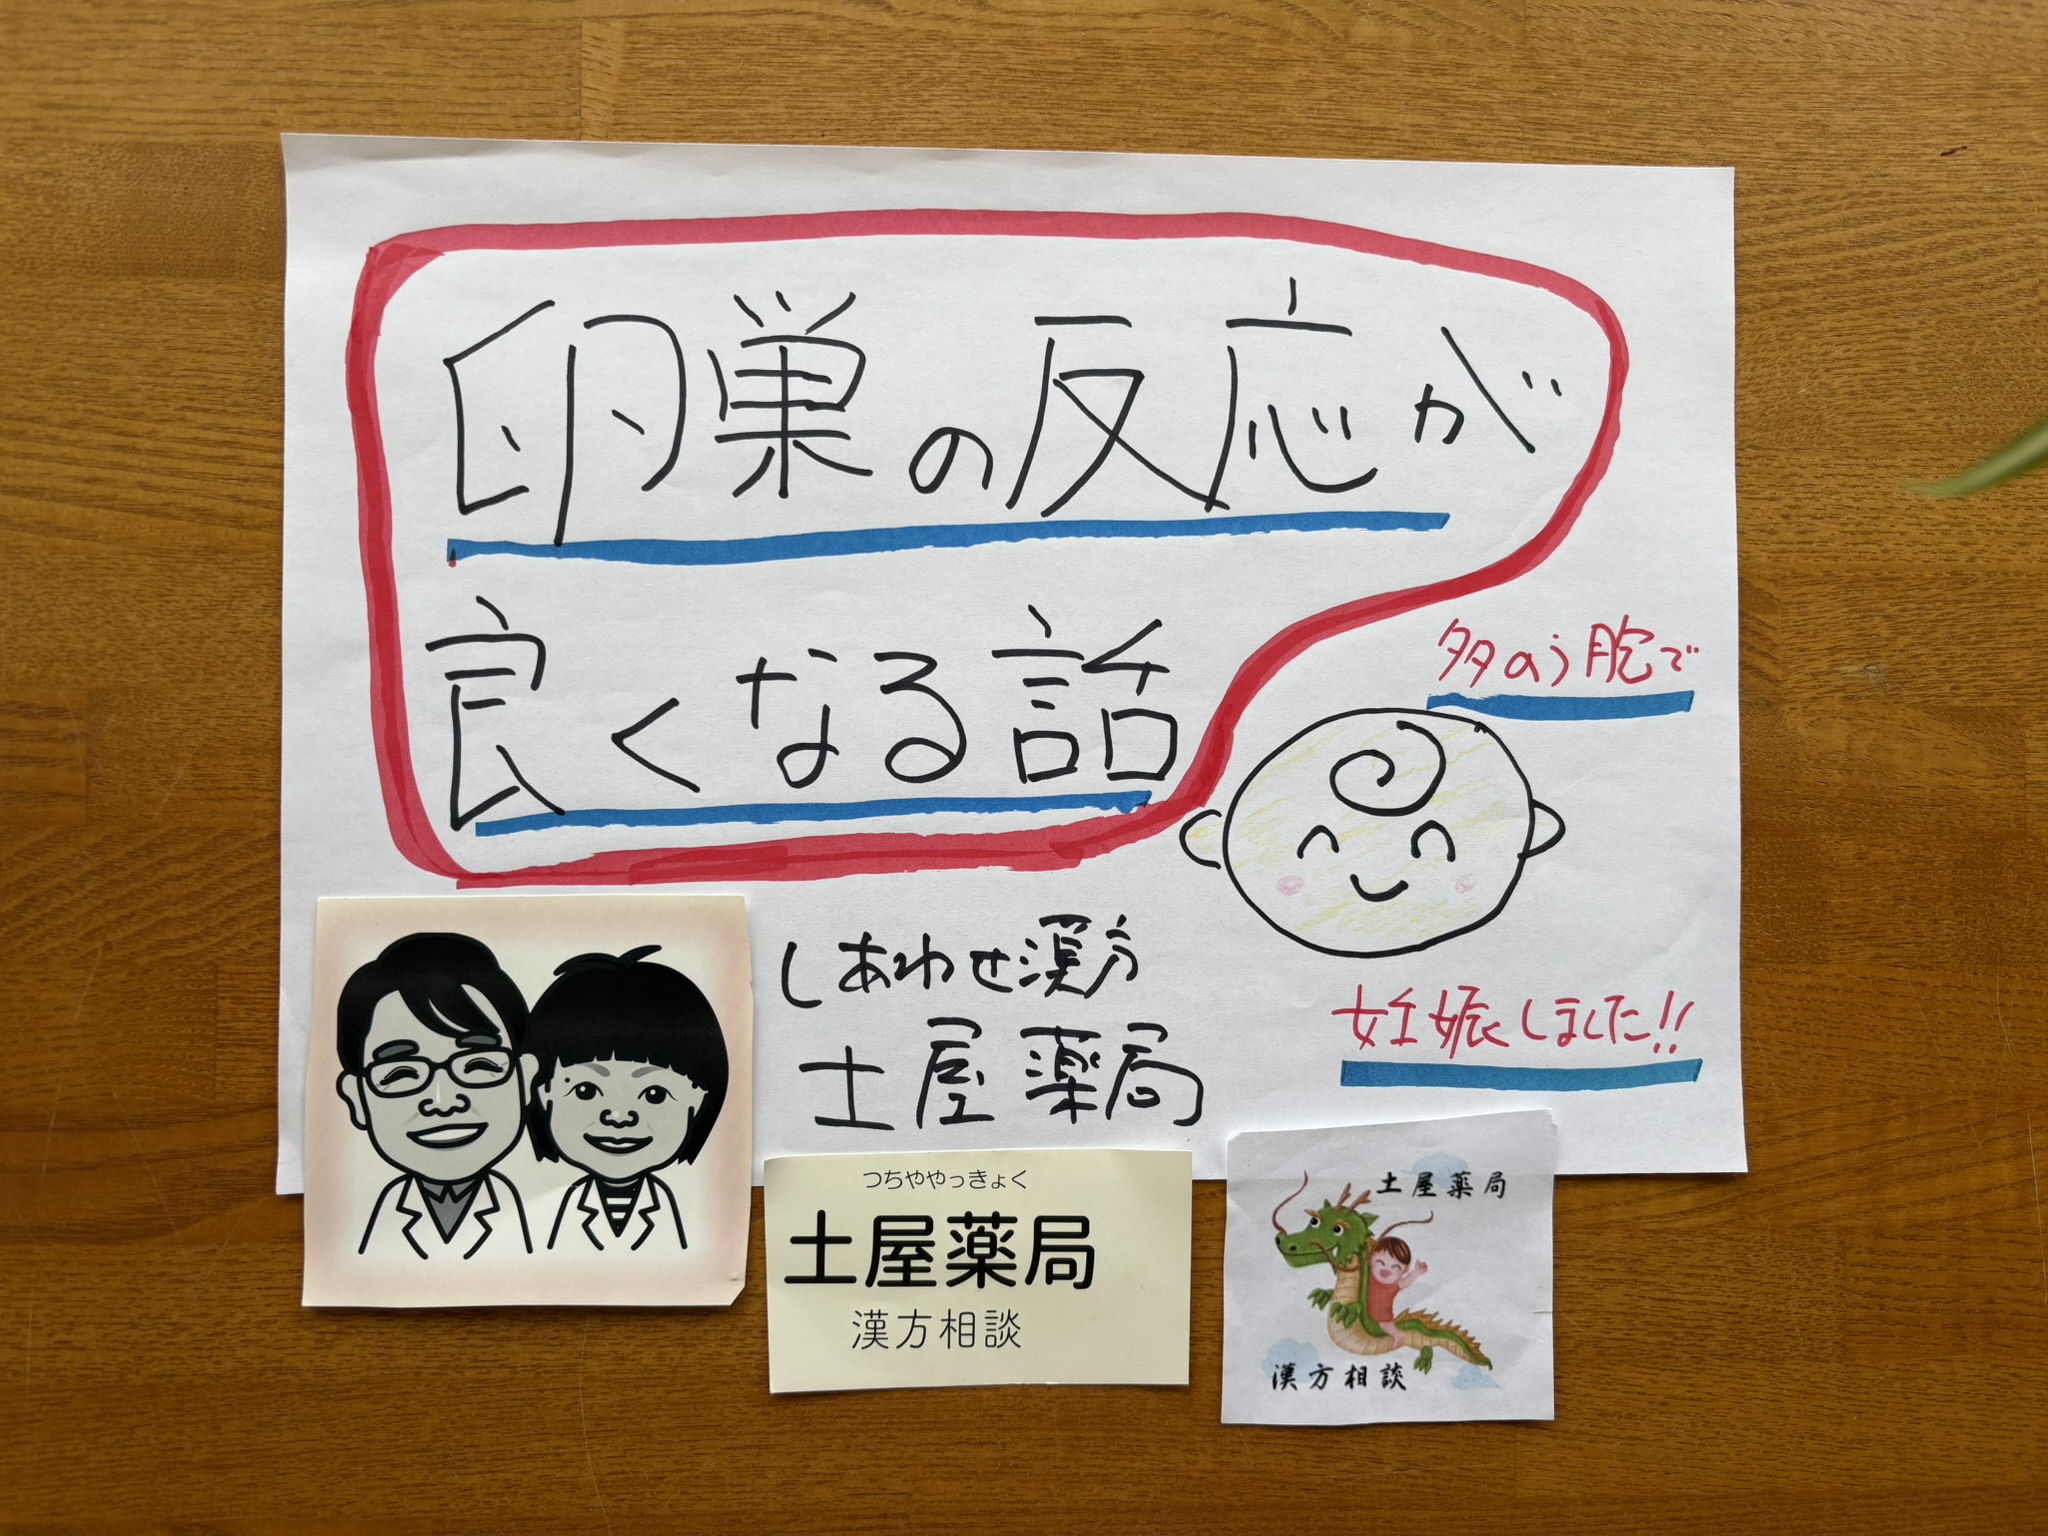 卵巣の反応が
良くなる話
多のう胞で
妊娠しました!!
しあわせ漢方
土屋薬局
つちややっきょく
土屋薬局
漢方相談
土屋薬局
漢方相談